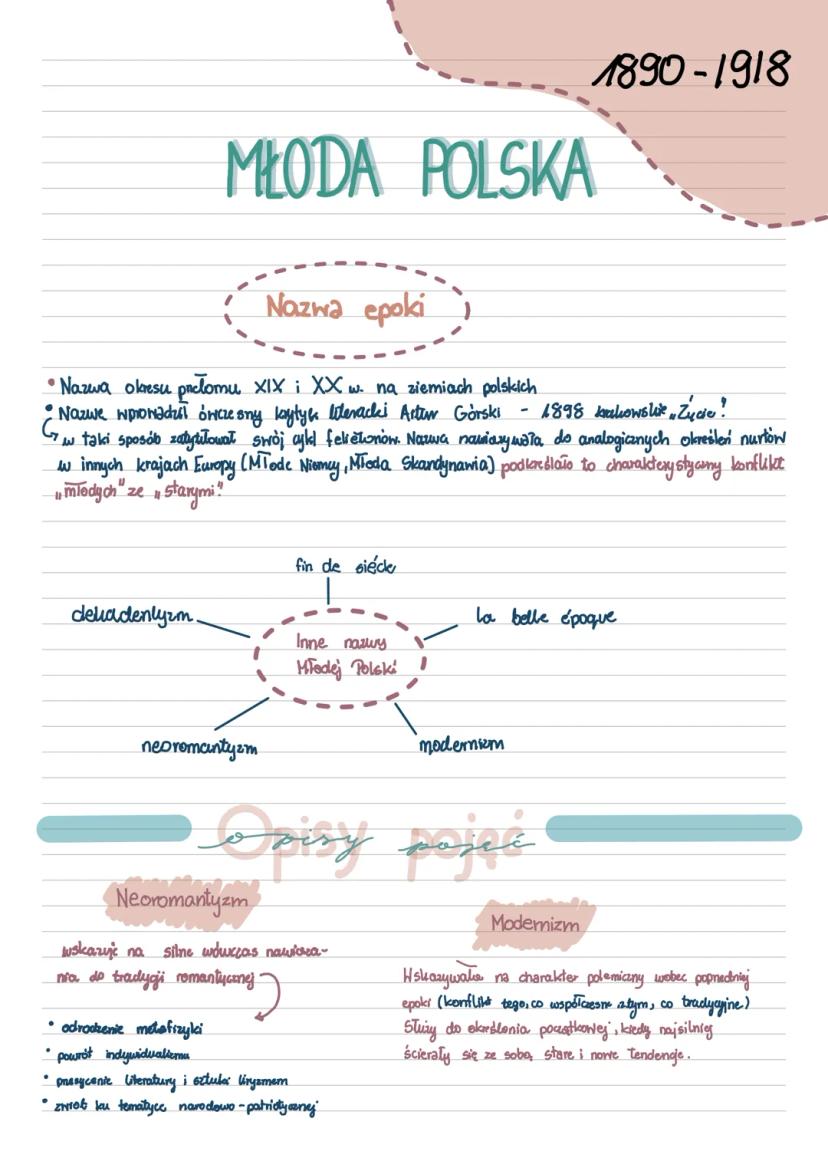 1890-1918
MŁODA POLSKA
Nazwa epoki
• Nazwa okresu przełomu XIX i XX w. na ziemiach polskich
• Nazwę wprowadził ówczesny krytyk literacki Artur Górski - 1898 krakowskie „Życie".
w taki sposób zatytułował swój cykl felietonów. Nazwa nawiązywała do analogicznych określeń nurtów
w innych krajach Europy (Młode Niemcy, Młoda Skandynawia) podkreślało to charakterystyczny konflikt
„młodych" ze „starymi".
fin de siécle
dekadentyzm
la belle époque
Inne nazwy
Młodej Polski
neoromantyzm
modernizm
Opisy pojęć
opisy pojęć
Neoromantyzm
Modernizm
wskazuje na silne wówczas nawiąza-
nia do tradycji romantycznej
• odrodzenie metafizyki
• powrót indywidualizmu
• przesycenie literatury i sztuki liryzmem
• zwrot ku tematyce narodowo-patriotycznej
Wskazywała na charakter polemiczny wobec poprzedniej
epoki (konflikt tego, co współczesne z tym, co tradycyjne)
Służy do określenia początkowej, kiedy najsilniej
ścierały się ze sobą, stare i nowe tendencje.